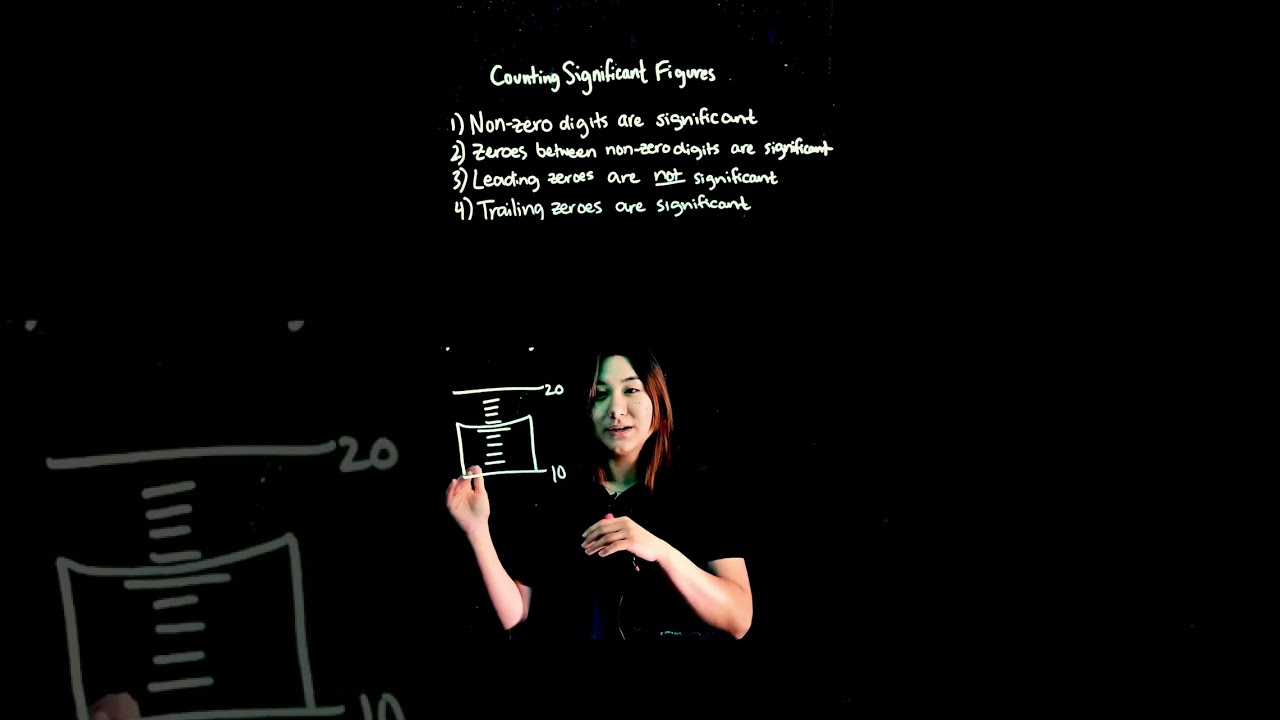 Counting Significant Figures
1) Non-zero digits are significant
2) Zeroes between non-zero digits are significant
3) Leading zeroes are not significant
4) Trailing zeroes are significant
20
10
20
10